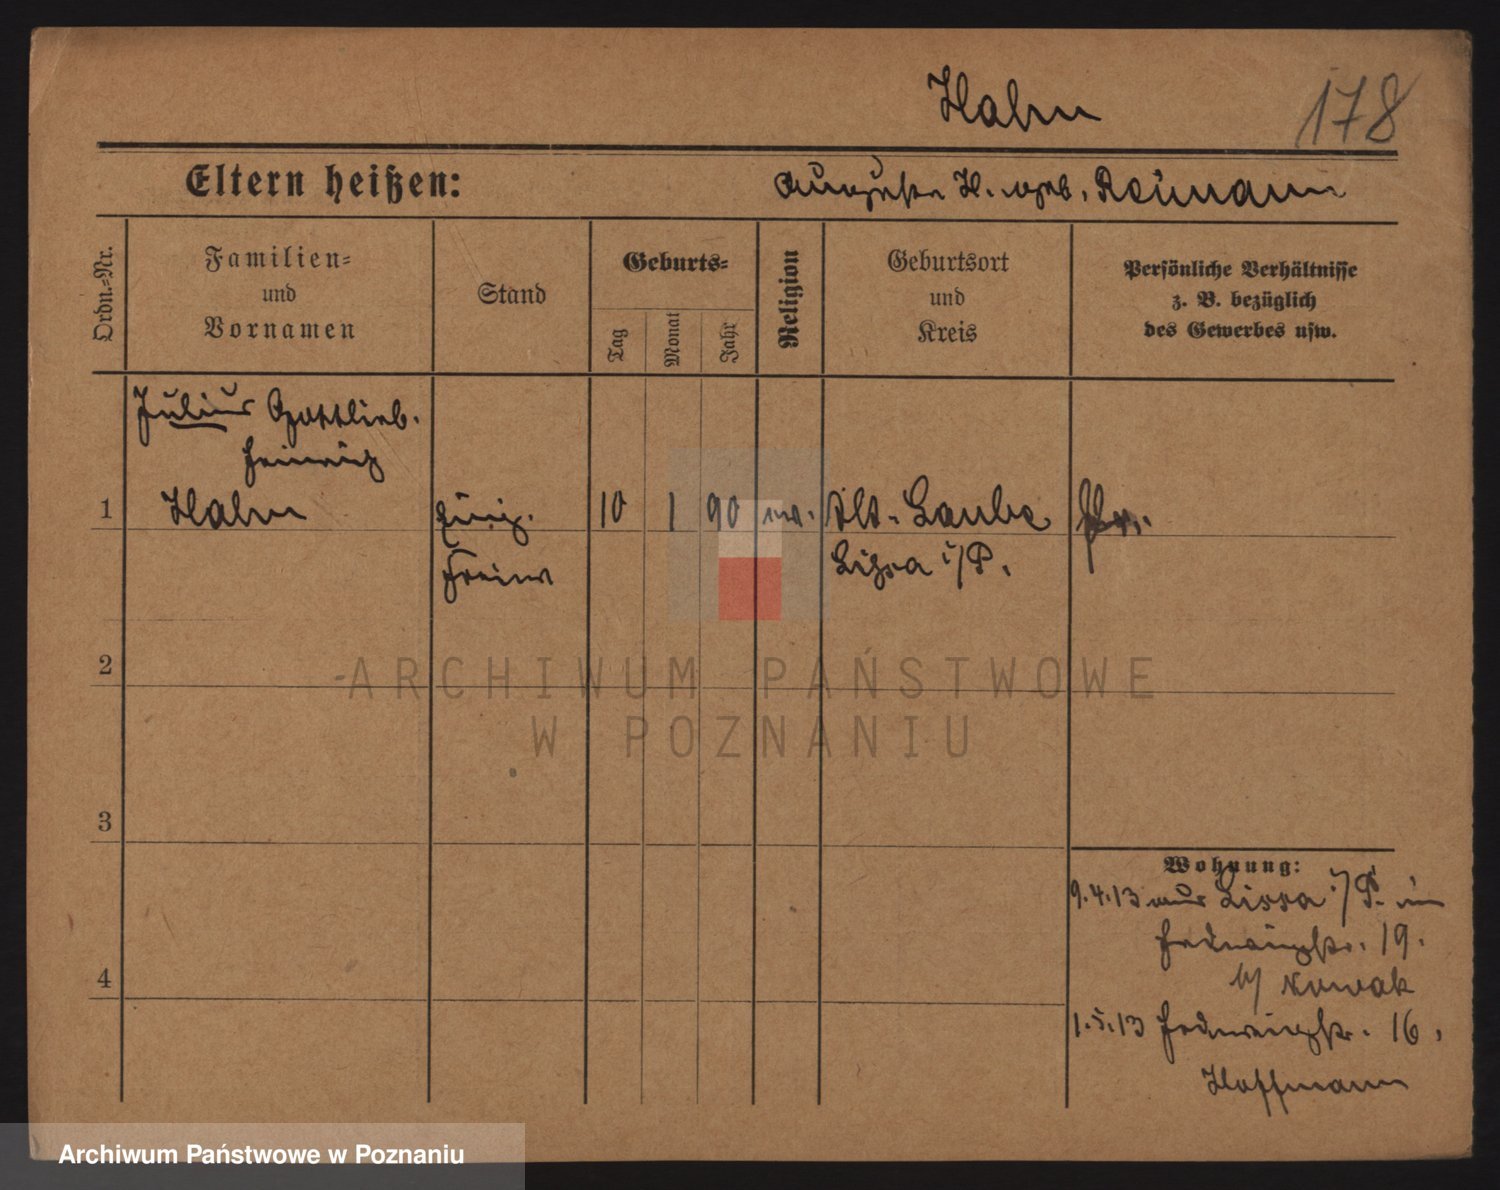 Hahn
178
Eltern heißen:
Auguste H. geb. Reimann
Ordn.-Nr.
Familien-
und
Vornamen
Stand
Geburts-
Tag
Monat
Jahr
Religion
Geburtsort
und
Kreis
Persönliche Verhältnisse
z. B. bezüglich
des Gewerbes usw.
Julius Gottlieb.
Heinrich
1 Hahn 10 1 90 Alt-Laube
Freiw Lissa i/P.
2
3
4
Wohnung:
9.4.13 aus Lissa i/P. in
Hedwigstr. 19.
b/ Nowak
1.5.13 Hedwigstr. 16,
Hoffmann
ARCHIWUM PAŃSTWOWE
W POZNANIU
Archiwum Państwowe w Poznaniu